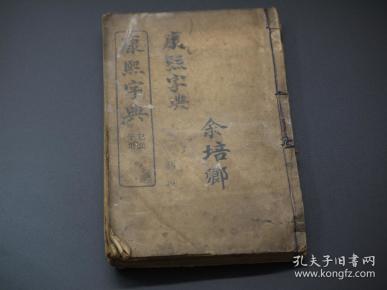 康熙字典
康熙字典
余培卿
孔夫子旧书网